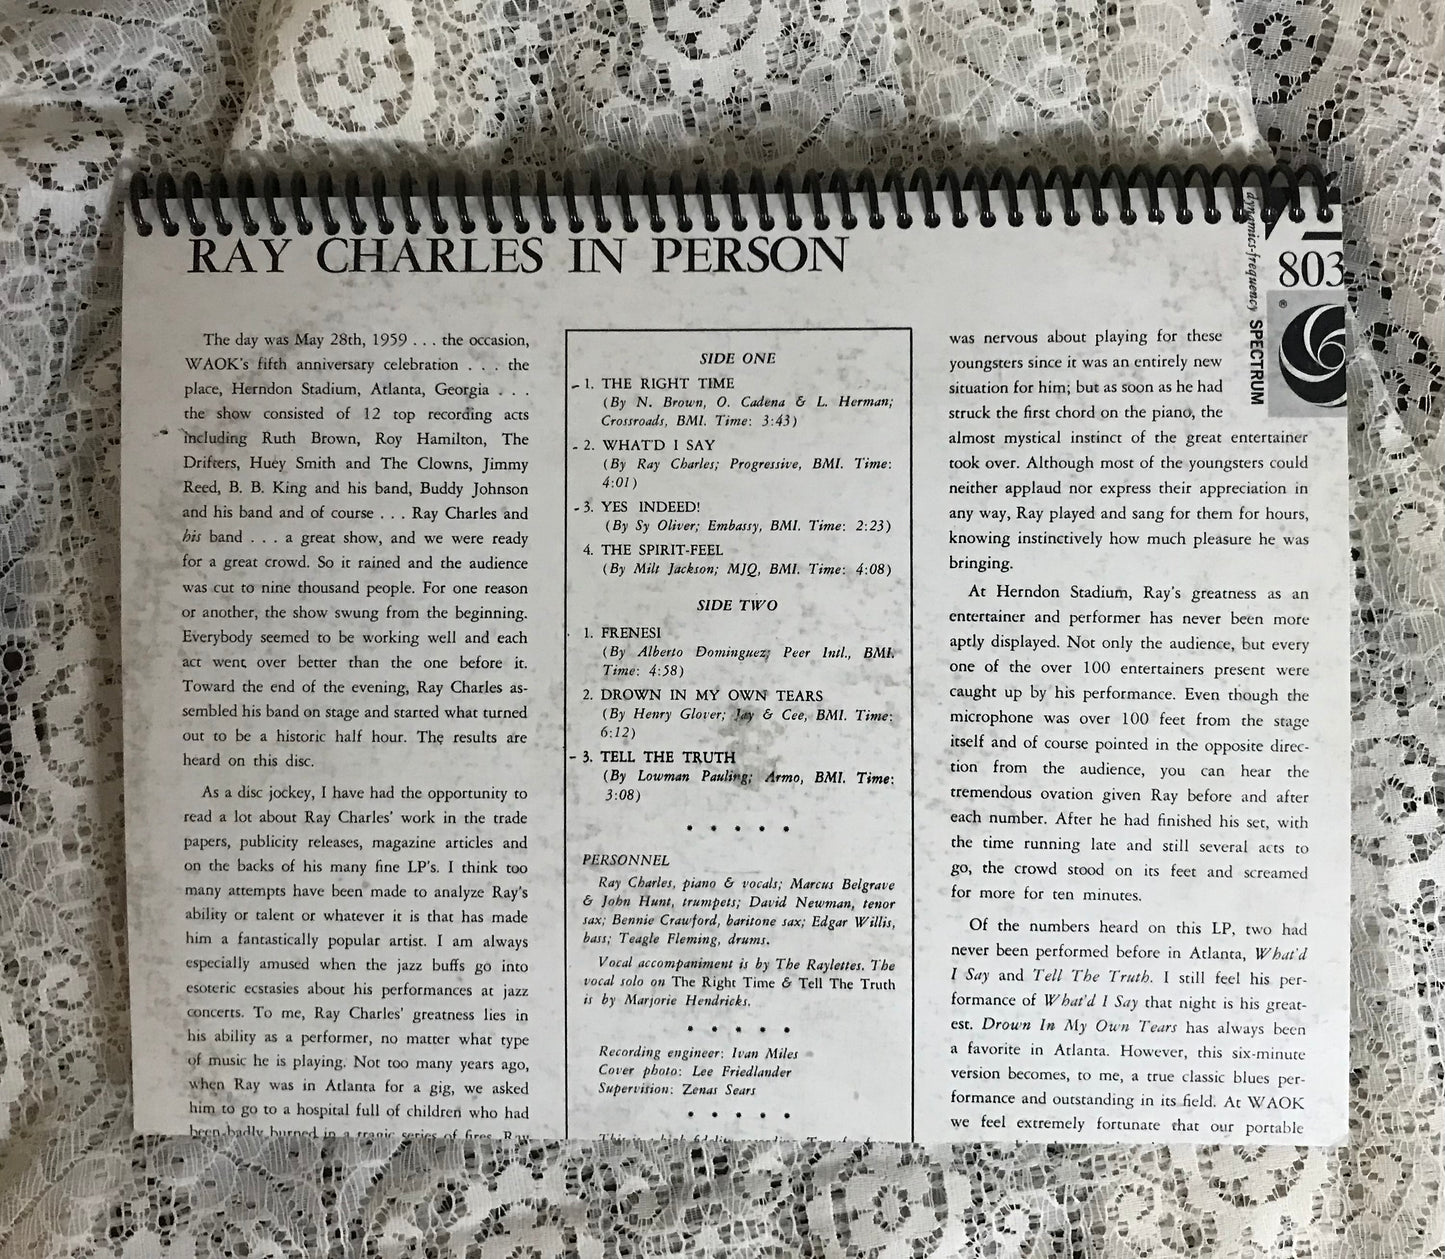 RAY CHARLES IN PERSON
dynamics-frequency SPECTRUM
803
®
The day was May 28th, 1959 . . . the occasion,
WAOK's fifth anniversary celebration . . . the
place, Herndon Stadium, Atlanta, Georgia . . .
the show consisted of 12 top recording acts
including Ruth Brown, Roy Hamilton, The
Drifters, Huey Smith and The Clowns, Jimmy
Reed, B. B. King and his band, Buddy Johnson
and his band and of course . . . Ray Charles and
his band . . . a great show, and we were ready
for a great crowd. So it rained and the audience
was cut to nine thousand people. For one reason
or another, the show swung from the beginning.
Everybody seemed to be working well and each
act went over better than the one before it.
Toward the end of the evening, Ray Charles as-
sembled his band on stage and started what turned
out to be a historic half hour. The results are
heard on this disc.
As a disc jockey, I have had the opportunity to
read a lot about Ray Charles' work in the trade
papers, publicity releases, magazine articles and
on the backs of his many fine LP's. I think too
many attempts have been made to analyze Ray's
ability or talent or whatever it is that has made
him a fantastically popular artist. I am always
especially amused when the jazz buffs go into
esoteric ecstasies about his performances at jazz
concerts. To me, Ray Charles' greatness lies in
his ability as a performer, no matter what type
of music he is playing. Not too many years ago,
when Ray was in Atlanta for a gig, we asked
him to go to a hospital full of children who had
been badly burned in a tragic series of fires. Ray
SIDE ONE
- 1. THE RIGHT TIME
(By N. Brown, O. Cadena & L. Herman;
Crossroads, BMI. Time: 3:43)
- 2. WHAT'D I SAY
(By Ray Charles; Progressive, BMI. Time:
4:01)
- 3. YES INDEED!
(By Sy Oliver; Embassy, BMI. Time: 2:23)
4. THE SPIRIT-FEEL
(By Milt Jackson; MJQ, BMI. Time: 4:08)
SIDE TWO
1. FRENESI
(By Alberto Dominguez; Peer Intl., BMI.
Time: 4:58)
2. DROWN IN MY OWN TEARS
(By Henry Glover; Jay & Cee, BMI. Time:
6:12)
- 3. TELL THE TRUTH
(By Lowman Pauling; Armo, BMI. Time:
3:08)
• • • • •
PERSONNEL
Ray Charles, piano & vocals; Marcus Belgrave
& John Hunt, trumpets; David Newman, tenor
sax; Bennie Crawford, baritone sax; Edgar Willis,
bass; Teagle Fleming, drums.
Vocal accompaniment is by The Raylettes. The
vocal solo on The Right Time & Tell The Truth
is by Marjorie Hendricks.
• • • • •
Recording engineer: Ivan Miles
Cover photo: Lee Friedlander
Supervision: Zenas Sears
• • • • •
was nervous about playing for these
youngsters since it was an entirely new
situation for him; but as soon as he had
struck the first chord on the piano, the
almost mystical instinct of the great entertainer
took over. Although most of the youngsters could
neither applaud nor express their appreciation in
any way, Ray played and sang for them for hours,
knowing instinctively how much pleasure he was
bringing.
At Herndon Stadium, Ray's greatness as an
entertainer and performer has never been more
aptly displayed. Not only the audience, but every
one of the over 100 entertainers present were
caught up by his performance. Even though the
microphone was over 100 feet from the stage
itself and of course pointed in the opposite direc-
tion from the audience, you can hear the
tremendous ovation given Ray before and after
each number. After he had finished his set, with
the time running late and still several acts to
go, the crowd stood on its feet and screamed
for more for ten minutes.
Of the numbers heard on this LP, two had
never been performed before in Atlanta, What'd
I Say and Tell The Truth. I still feel his per-
formance of What'd I Say that night is his great-
est. Drown In My Own Tears has always been
a favorite in Atlanta. However, this six-minute
version becomes, to me, a true classic blues per-
formance and outstanding in its field. At WAOK
we feel extremely fortunate that our portable